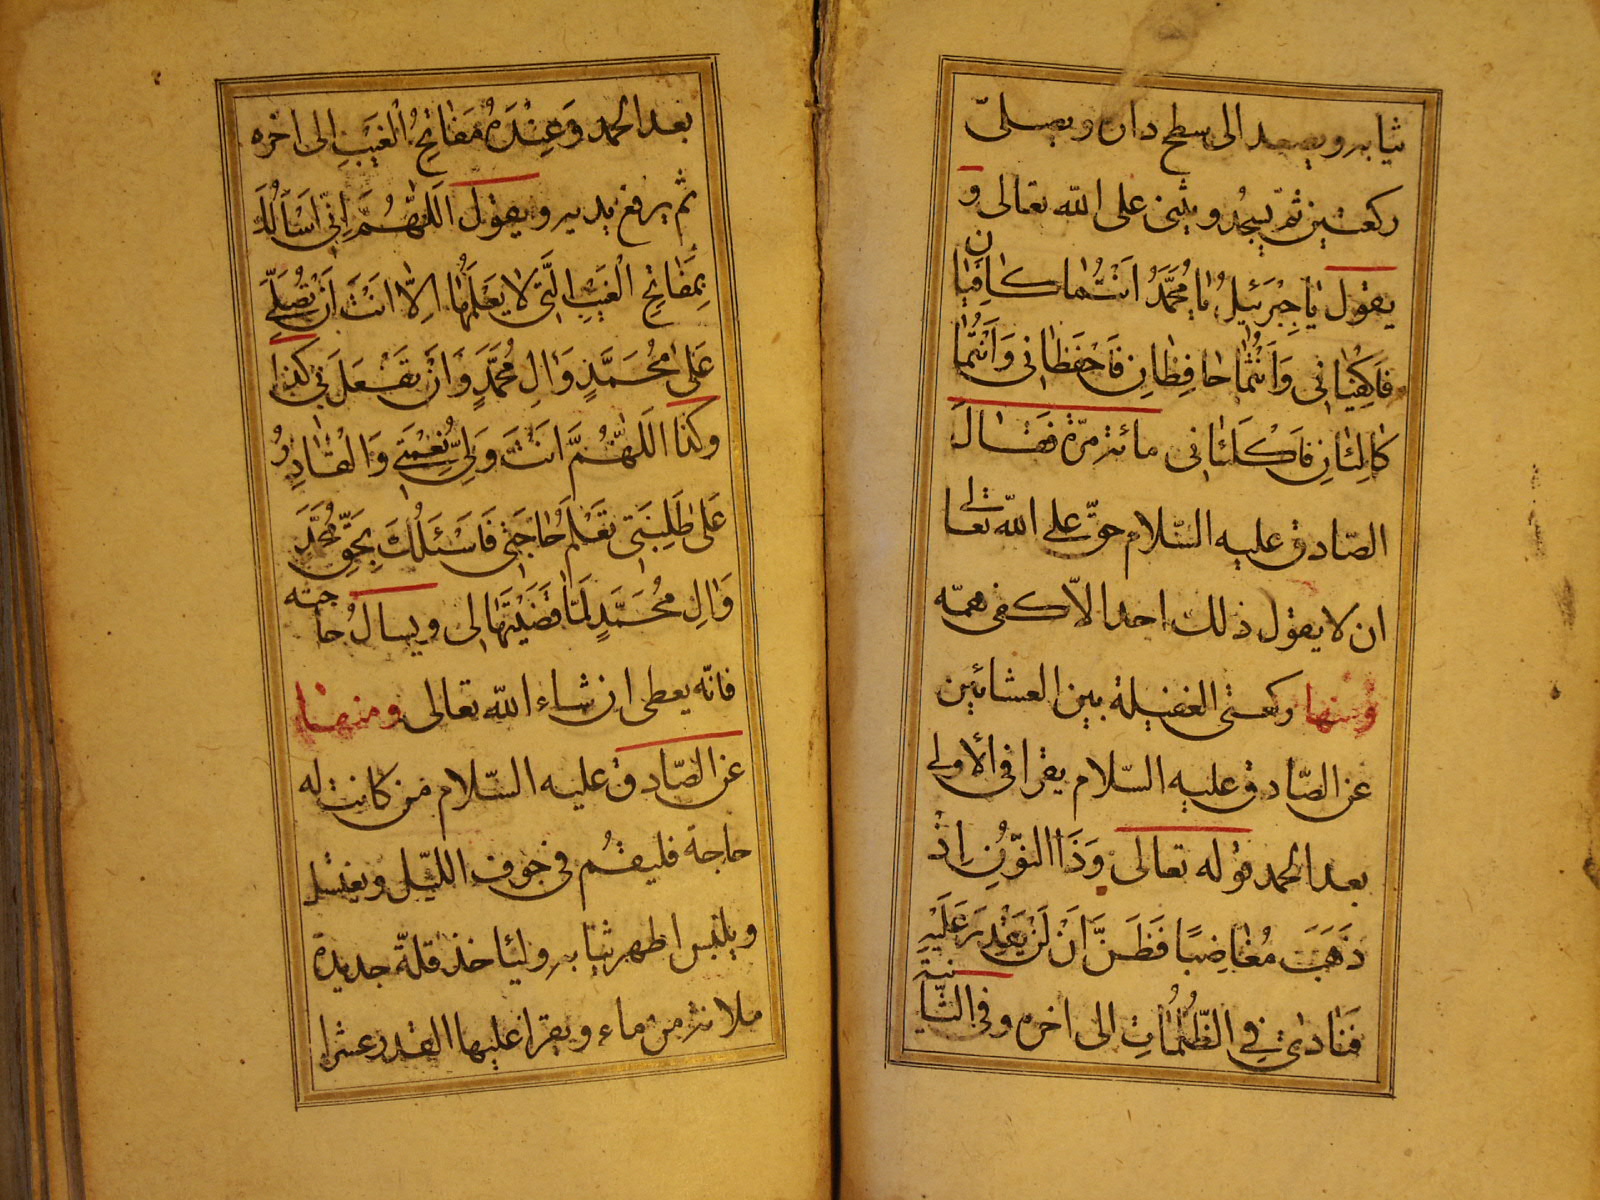 ثيابه ويصعد الى سطح داره ويصلّى
ركعتين ثمّ يسجُد ويثنى على الله تعالى و
يقول يٰا جِبْرَئيلُ يٰا مُحَمَّدُ اَنْتُمٰا كٰافِيٰانِ
فَاكْفِيٰانى وَاَنْتُمٰا حٰافِظٰانِ فَاحْفَظٰانى وَاَنْتُمٰا
كٰالِئٰانِ فَاكْلَئٰانى مائة مرّة فقٰال
الصّادق عليه السّلام حقّ على الله تعالى
ان لا يقول ذلك احد الاّ كفى همّه
ومنها ركعتى الغفيلة بين العشائين
عن الصّادق عليه السّلام يقرا فى الأولى
بعد الحمد قوله تعالى وَذَا النّوُنِ اِذْ
ذَهَبَ مُغٰاضِبًا فَظَنَّ اَنْ لَنْ يَقْدِرَ عَلَيْهِ
فَنٰادٰى فِى الظُّلُمٰاتِ الى اخره وفى الثّانية
بعد الحمد وَعِنْدَهُ مَفٰاتِحُ الْغَيْبِ الى اخره
ثم يرفع يديه ويقول اَللّٰهُمَّ اِنّى اَسْاَلُكَ
بِمَفٰاتِحِ الْغَيْبِ الَّتى لٰا يَعْلَمُهٰا اِلاّ اَنْتَ اَنْ تُصَلِّىَ
عَلىٰ مُحَمَّدٍ وَاٰلِ مُحَمَّدٍ وَاَنْ تَفْعَلَ بى كذا
وكذا اَللّٰهُمَّ اَنْتَ وَلِىُّ نِعْمَتى وَالْقٰادِرُ
عَلىٰ طَلِبَتى تَعْلَمُ حٰاجَتى فَاَسْئَلُكَ بِحَقِّ مُحَمَّدٍ
وَاٰلِ مُحَمَّدٍ لَمّٰا قَضَيْتَهٰا لى ويسالُ حاجته
فانّه يعطى ان شاء الله تعالى ومنهٰا
عن الصّادق عليه السّلام من كانت له
حاجة فليقُم فى جوف اللّيل ويغتسل
ويلبس اطهر ثيابه وليٰاخذ قلّة جديدة
ملانة من ماء ويقرا عليها القدر عشرا